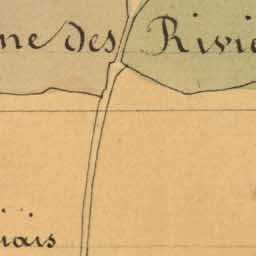 ne des Riviè
iais